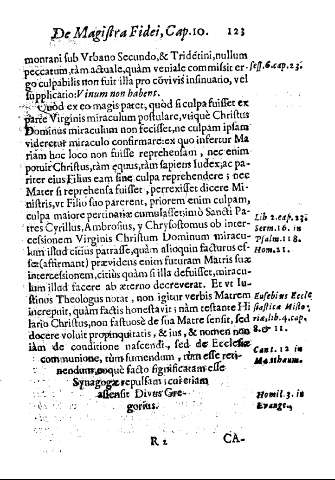 De Magiſtra Fidei, Cap. 10. 123
montani ſub Vrbano Secundo, & Tridētini, nullum
peccatum, tàm actuale, quàm veniale commiſit er-
go culpabilis non fuit illa pro cōvivis inſinuatio, vel
ſupplicatio: Vinum non habent.
ſeſſ. 6. cap. 23.
Quòd ex eo magis patet, quòd ſi culpa fuiſſet ex
parte Virginis miraculum poſtulare, vtiquè Chriſtus
Dominus miraculum non feciſſet, ne culpam ipſam
videretur miraculo confirmare: ex quo infertur Ma
riam hoc loco non fuiſſe reprehenſam, nec enim
potuit Chriſtus, tàm equus, tàm ſapiens Iudex, ac pa-
riter ejus Filius eam ſinè culpa reprehendere; nec
Mater ſi reprehenſa fuiſſet, perrexiſſet dicere Mi-
niſtris, vt Filio ſuo parerent, priorem enim culpam,
culpa maiore pertinatiæ cumulaſſet; imò Sancti Pa-
tres Cyrillus, Ambroſius, y Chryſoſtomus ob inter-
ceſſionem Virginis Chriſtum Dominum miracu-
lum illud citius patraſſe, quàm alioquin facturus eſ-
ſet (affirmant) prævidens enim futuram Matris ſuæ
interceſſionem, citiùs quàm ſi illa defuiſſet, miracu-
lum illud facere ab æterno decreverat. Et vt Iu-
Lib 2. cap. 23.
Serm. 16. in
Pſalm. 118.
Hom. 21.
ſtinus Theologus notat, non igitur verbis Matrem
increpuit, quàm factis honeſtavit; nàm teſtante Hi
lario Chriſtus, non faſtuosè de ſua Matre ſenſit, ſed
docere voluit propinquitatis, & ius, & nomen non
iàm de conditione naſcendi, ſed de Eccleſiæ
communione, tùm ſumendum, tùm eſſe reti-
nendum, eoquè facto ſignificatam eſſe
Synagogæ repulſam; cui etiam
aſſenſit Divus Gre-
gorius.
Euſebius Eccle
ſiaſticæ Hiſto,
riæ, lib. 4. cap.
8. & 11.
Cant. 12 in
Matthæum.
Homil. 3. in
Evange.
R 2 CA-